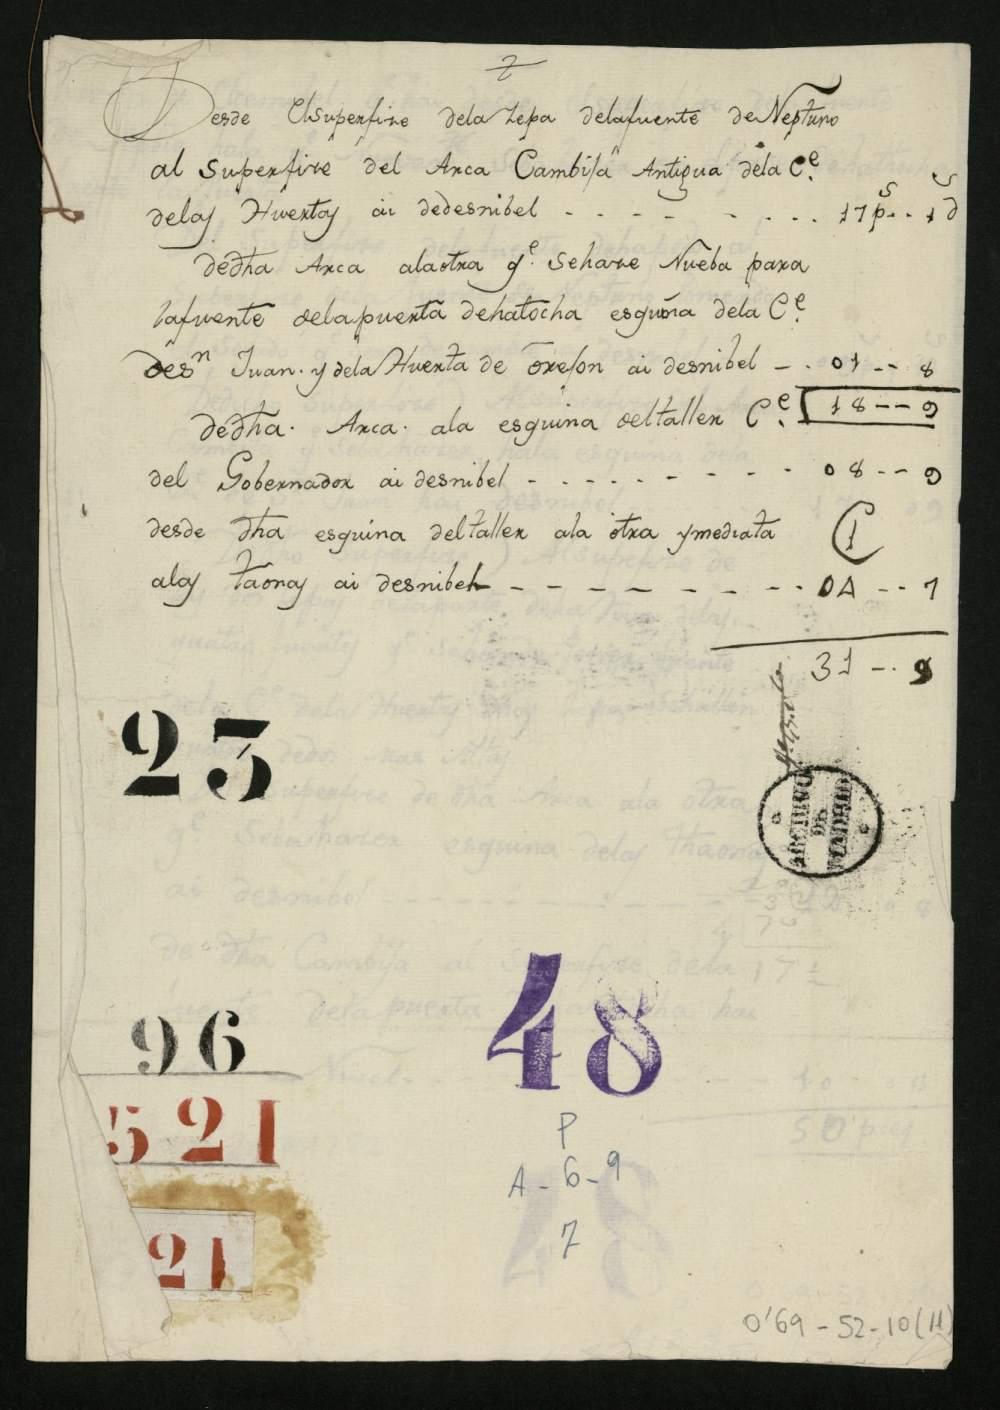 2
Desde el superfize dela zepa delafuente de Neptuno
al superfize del Arca Cambija Antigua dela C.e
delas Huertas ai dedesnibel - - - - - - - 17 ps - - 1 ds
dedha Arca alaotra q.e sehaze Nueba para
lafuente delapuerta dehatocha esquina dela C.e
desn Juan. y dela Huerta de orejon ai desnibel - - 01 - - 8
dedha. Arca. ala esquina deltaller C.e 18 - - 9
del Gobernador ai desnibel - - - - - - - 08 - - 9
desde dha esquina deltaller ala otra ymediata
(1
alas taonas ai desnibel - - - - - - - - 04 - - 7
31 - - 9
23
ARCHIVO
DE
MADRID
96
48
521
P
A - 6 - 9
7
21
0'69 - 52 - 10 (11)